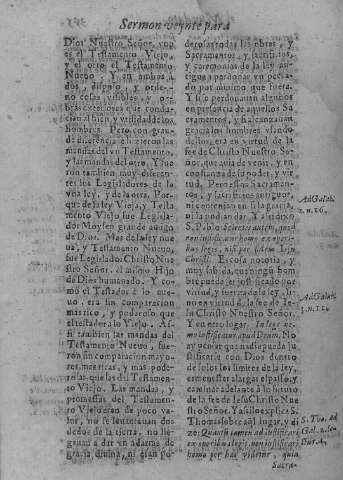 Sermon veynte para
Dios Nuestro Señor, vno
es el Testamento Viejo,
y el otro el Testamento
Nueuo, y en ambos à
dos, dispuso, y orde-
nò cosas visibles, y
al bien, y vtilidad de los
hombres. Pero con gran-
de diferencia se hizieron las
mandas del vn Testamento,
y las mandas del otro. Y fue
ron tambien muy diferen-
tes los Legisladores de la
vna ley, y de la otra. Por-
que de la ley Vieja, y Testa
mento Viejo fue Legisla-
dor Moysen grande amigo
de Dios. Mas de la ley nue
ua, y Testamento Nueuo,
fue Legislador Christo Nues
tro Señor, el mismo Hijo
de Dios humanado. Y co-
mo el Testador lo
uo, era sin comparacion
mas rico, y poderoso que
el testador lo Viejo. As-
si tambien las mandas del
Testamento Nueuo, fue-
ron sin comparacion mayo-
res, mas ricas, y mas pode-
rosas, que las del Testamen-
to Viejo. Las mandas, y
promessas del Testamen-
to Viejo eran de poco va-
lor, no se leuantauan dos
dedos de la tierra, no lle-
gauan a dar vn adarme de
gracia diuina, ni eran po-
derosas todas las obras, y
Sacramentos, y sacrificios,
y ceremonias de la ley an-
tigua a perdonar vn peca-
do por minimo que fuera.
Y si se perdonauan algunos
en presencia de aquellos Sa
cramentos, y si alcançauan
gracia los hombres vsando
dellos, era en virtud de la
fee de Christo Nuestro Se-
ñor, que auia de venir, y en
confiança de su poder, y vir
tud. Pero essos Sacramen-
tos, y sacrificios antiguos,
ni contenian en si la gracia,
ni la podian dar. Y assi dixo
S. Pablo: Scientes autem, quod
non iustificatur homo ex operibus
legis, nisi per fidem Iesu
Christi. Es cosa notoria, y
muy sabida, que ningũ hom
bre puede ser justificado por
virtud, y fuerza de la ley, si
no en virtud, de la fee de Ie-
su Christo Nuestro Señor.
Y en otro lugar. In lege ne-
mo iustificatur apud Deum. No
ay pensar que nadie pueda ju
stificarse con Dios dentro
de solos los limites de la ley,
sino es que alargas el passo, y
caminar adelante à lo futuro
de la fee de Iesu Christo Nues
tro Señor. Y assi lo explica S.
Thomas sobre aquel lugar, y di
ze: Quantum homo ad iustificari
ex operibus legis, non iustificari
homo per hac videtur, quia
Sacra-
Ad Galat.
2. n. 16.
Ad Galat.
3. n. 11.
S. Tho. ad
Gal. 2. lec.